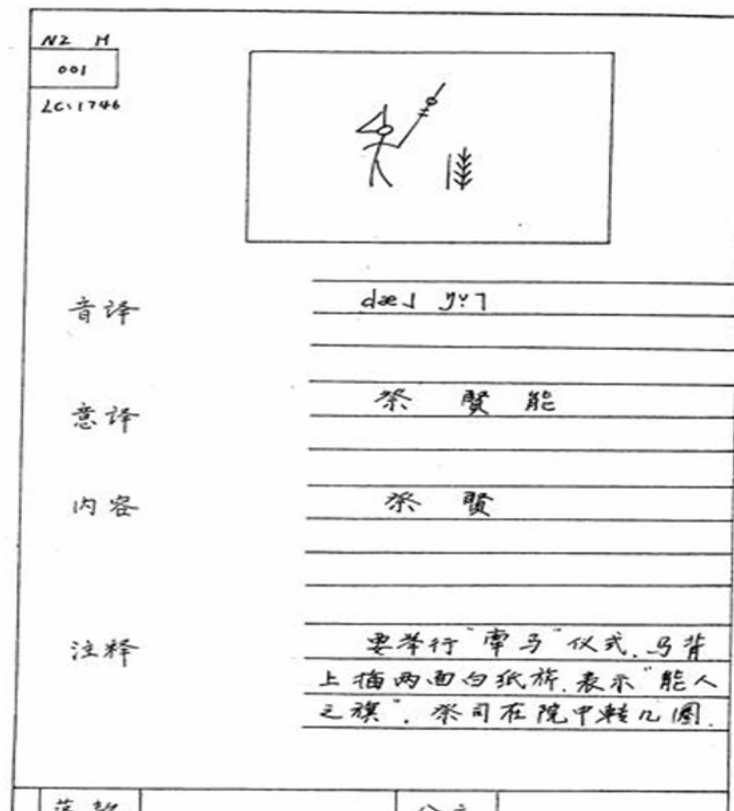 NZ H
001
LC:1746
音译 dæ˩ ɲv̩˥
意译 祭 贤 能
内容 祭 贤
注释 要举行"牵马"仪式.马背
上插两面白纸旗.表示"能人
之旗".祭司在院中转几圈.